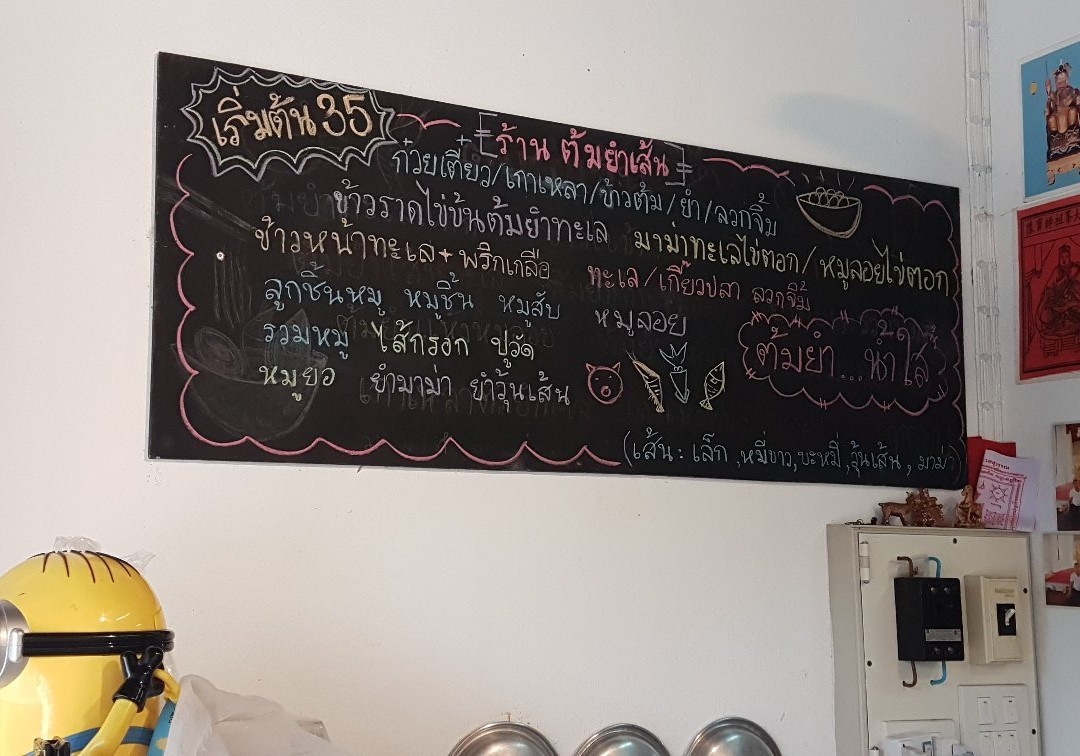 เริ่มต้น 35
ร้าน ต้มยำเส้น
ก๋วยเตี๋ยว/เกาเหลา/ข้าวต้ม/ยำ/ลวกจิ้ม
ข้าวราดไข่ข้นต้มยำทะเล มาม่าทะเลไข่ตอก/หมูลอยไข่ตอก
ข้าวหน้าทะเล+พริกเกลือ ทะเล/เกี๊ยวปลา ลวกจิ้ม
ลูกชิ้นหมู หมูชิ้น หมูสับ หมูลอย
รวมหมู ไส้กรอก ปูอัด
หมูยอ ยำมาม่า ยำวุ้นเส้น
ต้มยำ...น้ำใส
(เส้น: เล็ก, หมี่ขาว, บะหมี่, วุ้นเส้น, มาม่า)